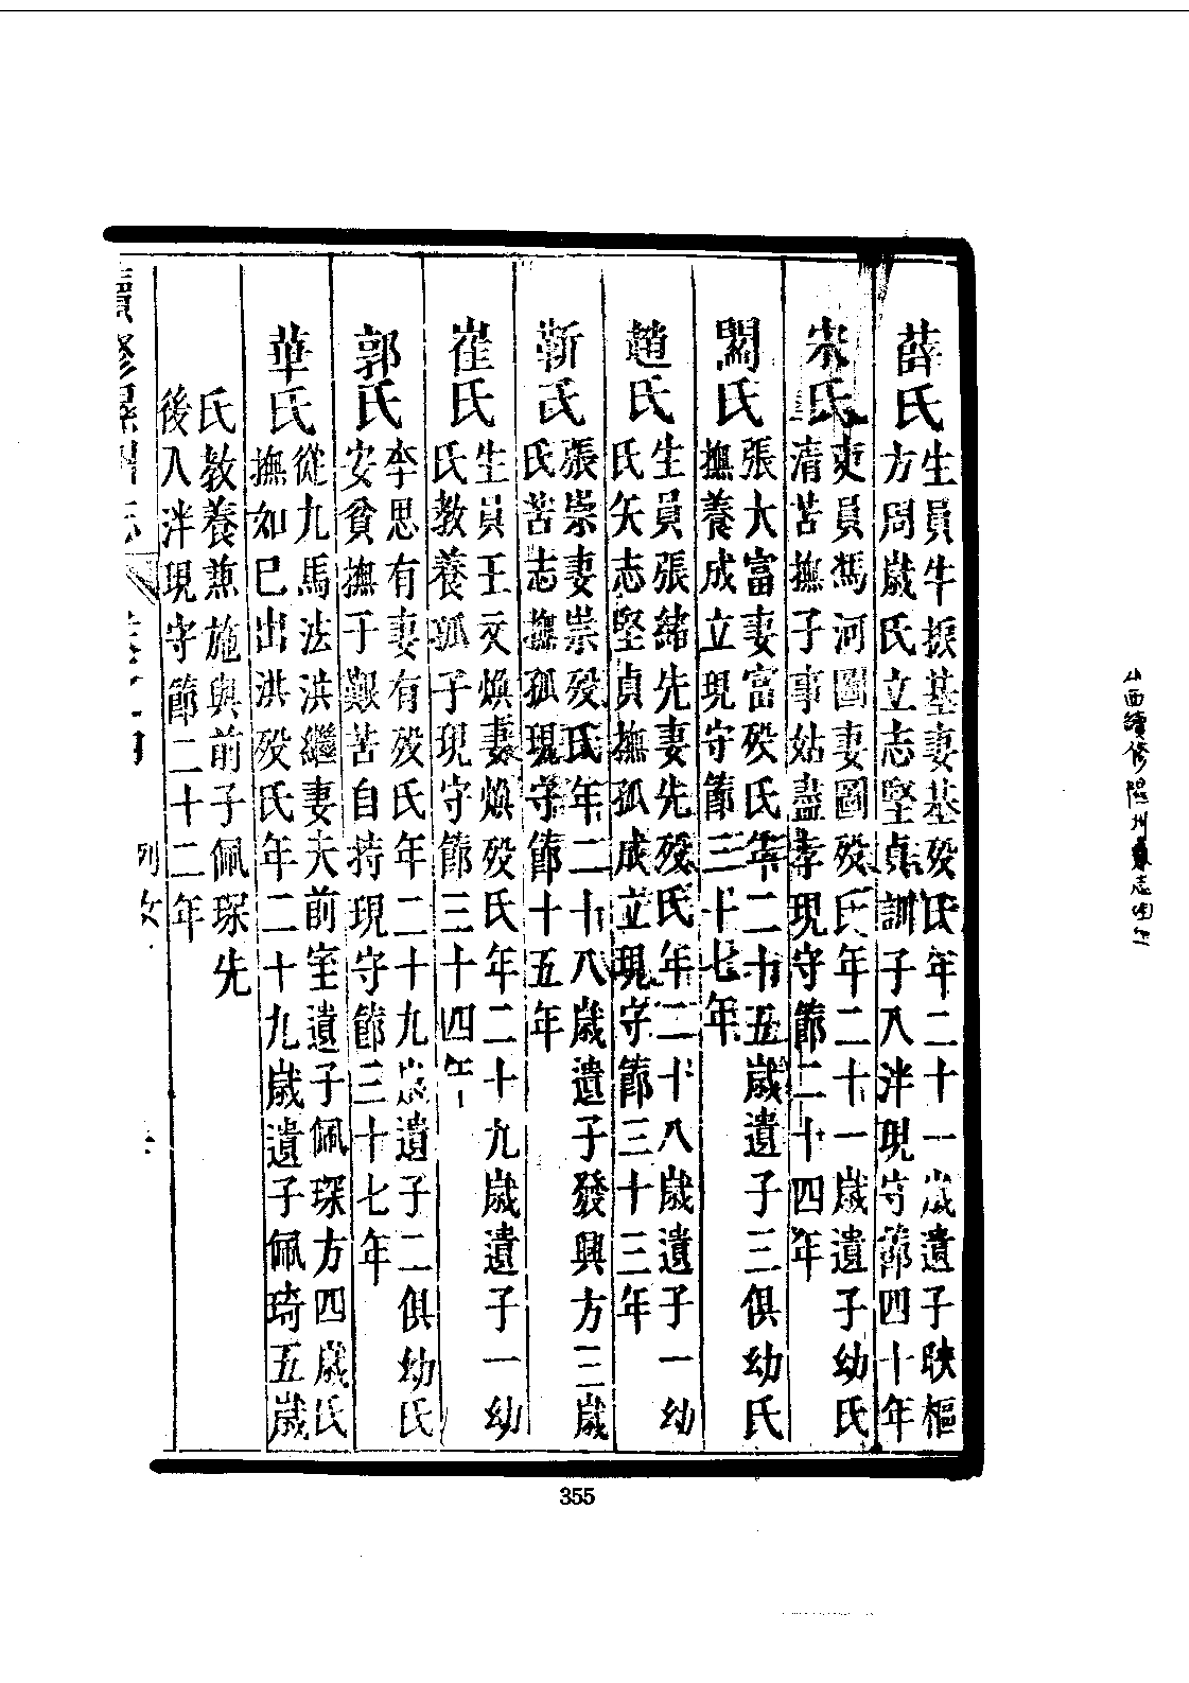 薛氏
生員牛振基妻基歿氏年二十一歲遺子映樞
方周歲氏立志堅貞訓子入泮現守節四十年
宋氏
吏員馮河圖妻圖歿氏年二十一歲遺子幼氏
清苦撫子事姑盡孝現守節二十四年
閻氏
張大富妻富歿氏年二十五歲遺子三俱幼氏
撫養成立現守節三十七年
趙氏
生員張緒先妻先歿氏年二十八歲遺子一幼
氏矢志堅貞撫孤成立現守節三十三年
靳氏
張崇妻崇歿氏年二十八歲遺子發興方三歲
氏苦志撫孤現守節十五年
崔氏
生員王文煥妻煥歿氏年二十九歲遺子一幼
氏教養孤子現守節三十四年
郭氏
李思有妻有歿氏年二十九歲遺子二俱幼氏
安貧撫子艱苦自持現守節三十七年
華氏
從九馬法洪繼妻夫前室遺子佩琛方四歲氏
撫如已出洪歿氏年二十九歲遺子佩琦五歲
氏教養兼施與前子佩琛先
後入泮現守節二十二年
續修隰州志
卷之四
列女
山西續修隰州志
355